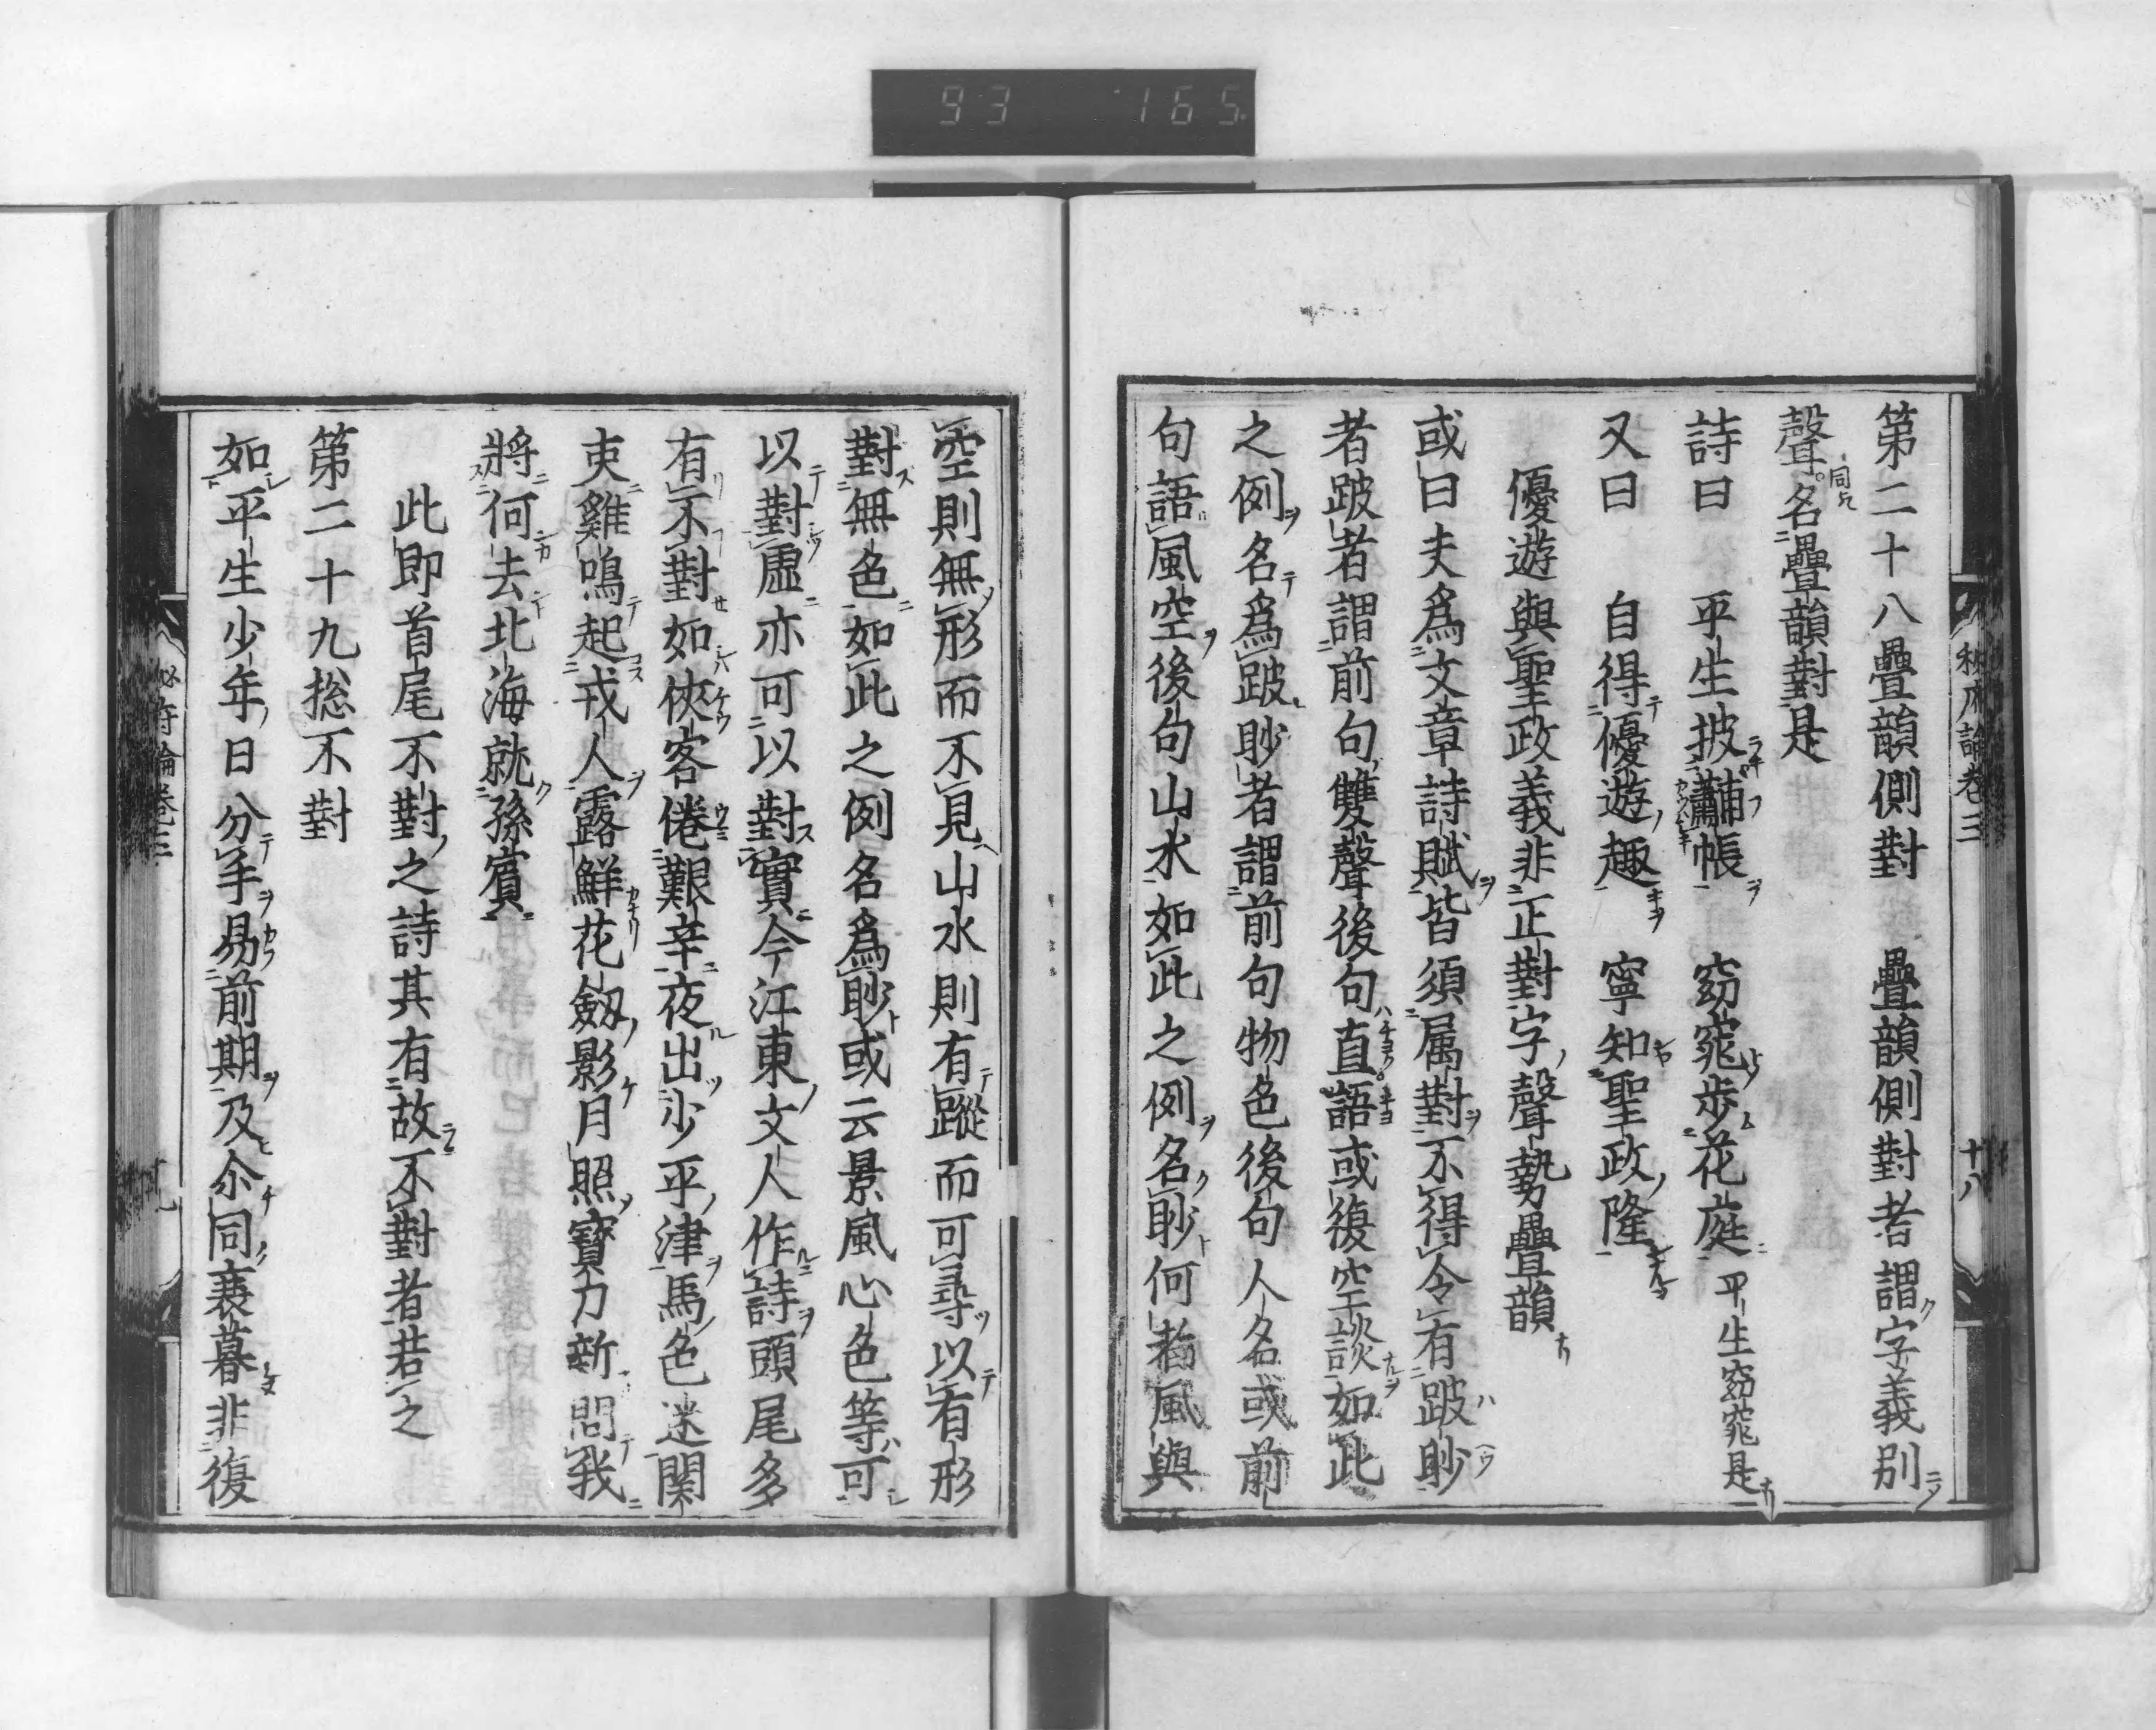 93 165
秘府論卷三 十八
第二十八疊韻側對 疊韻側對者謂字義別
聲名疊韻對是
詩曰 平生披黼帳 窈窕步花庭 平生窈窕是
又曰 自得優遊趣 寧知聖政隆
優遊與聖政義非正對字聲勢疊韻
或曰夫為文章詩賦皆須属對不得令有跛眇
者跛者謂前句雙聲後句直語或復空談如此
之例名為跛眇者謂前句物色後句人名或前
句語風空後句山水如此之例名眇何者風與
空則無形而不見山水則有蹤而可尋以有形
對無色如此之例名為眇或云景風心色等可
以對虛亦可以對實今江東文人作詩頭尾多
有不對如俠客倦艱辛夜出少平津馬色迷關
吏雞鳴起戎人露鮮花劔影月照寶刀新問我
將何去北海就孫賓
此即首尾不對之詩其有故不對者若之
第二十九捴不對
如平生少年日分手易前期及尒同衰暮非復